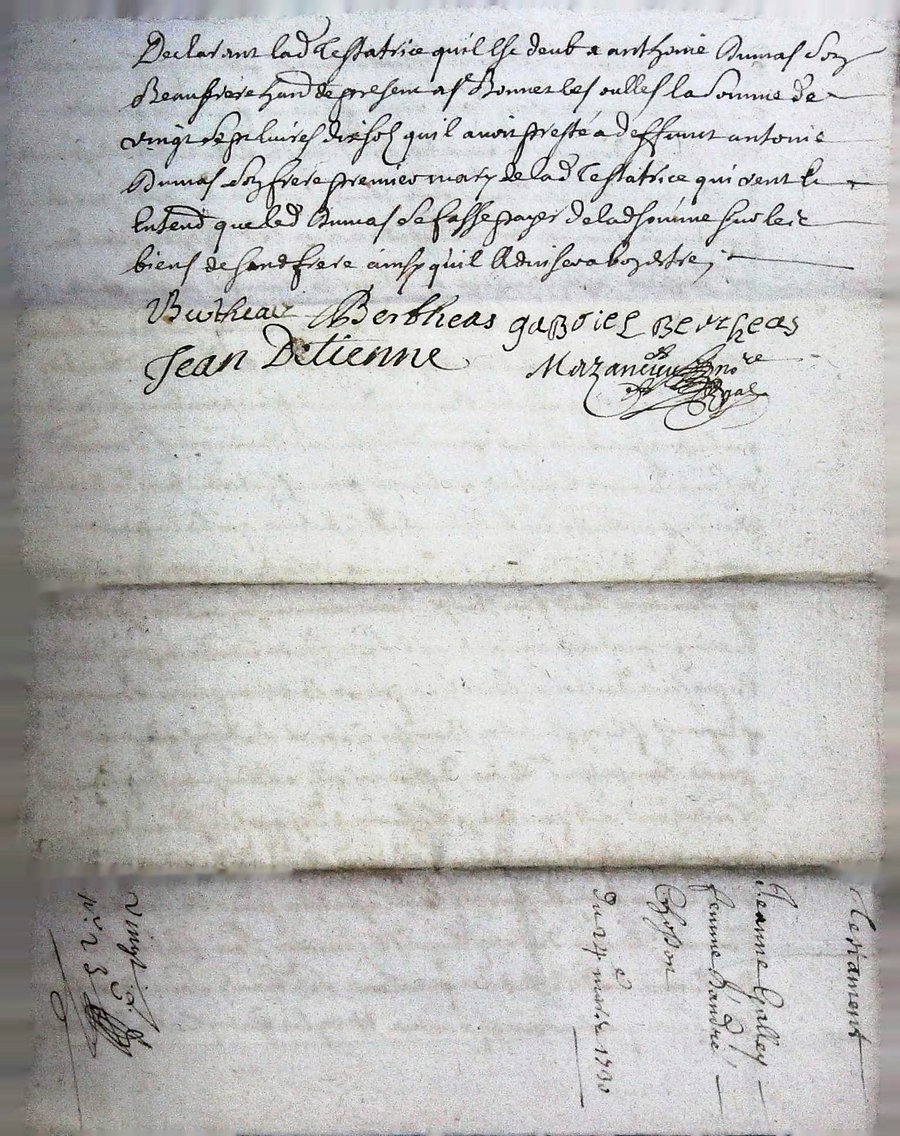 Declarant lad testatrice quil Est deub a anthoine dumas son
Beaufrere hand de present a st Bonnet les oulles la somme de
vingt sept livres dix sols quil avoit presté a deffunt antoine
dumas son frere premier mary de lad testatrice qui veut &
Entend que led dumas se fasse payer de lad somme sur les
biens de sond frere ainsy quil advisera bon estre
Bertheas Bertheas gabriel Bertheas
Jean Detienne Mazancieu nore
Royal
Testament
Jeanne Galley
femme dandré
Chosson
Du 15e mars 1730
vingt
no 23